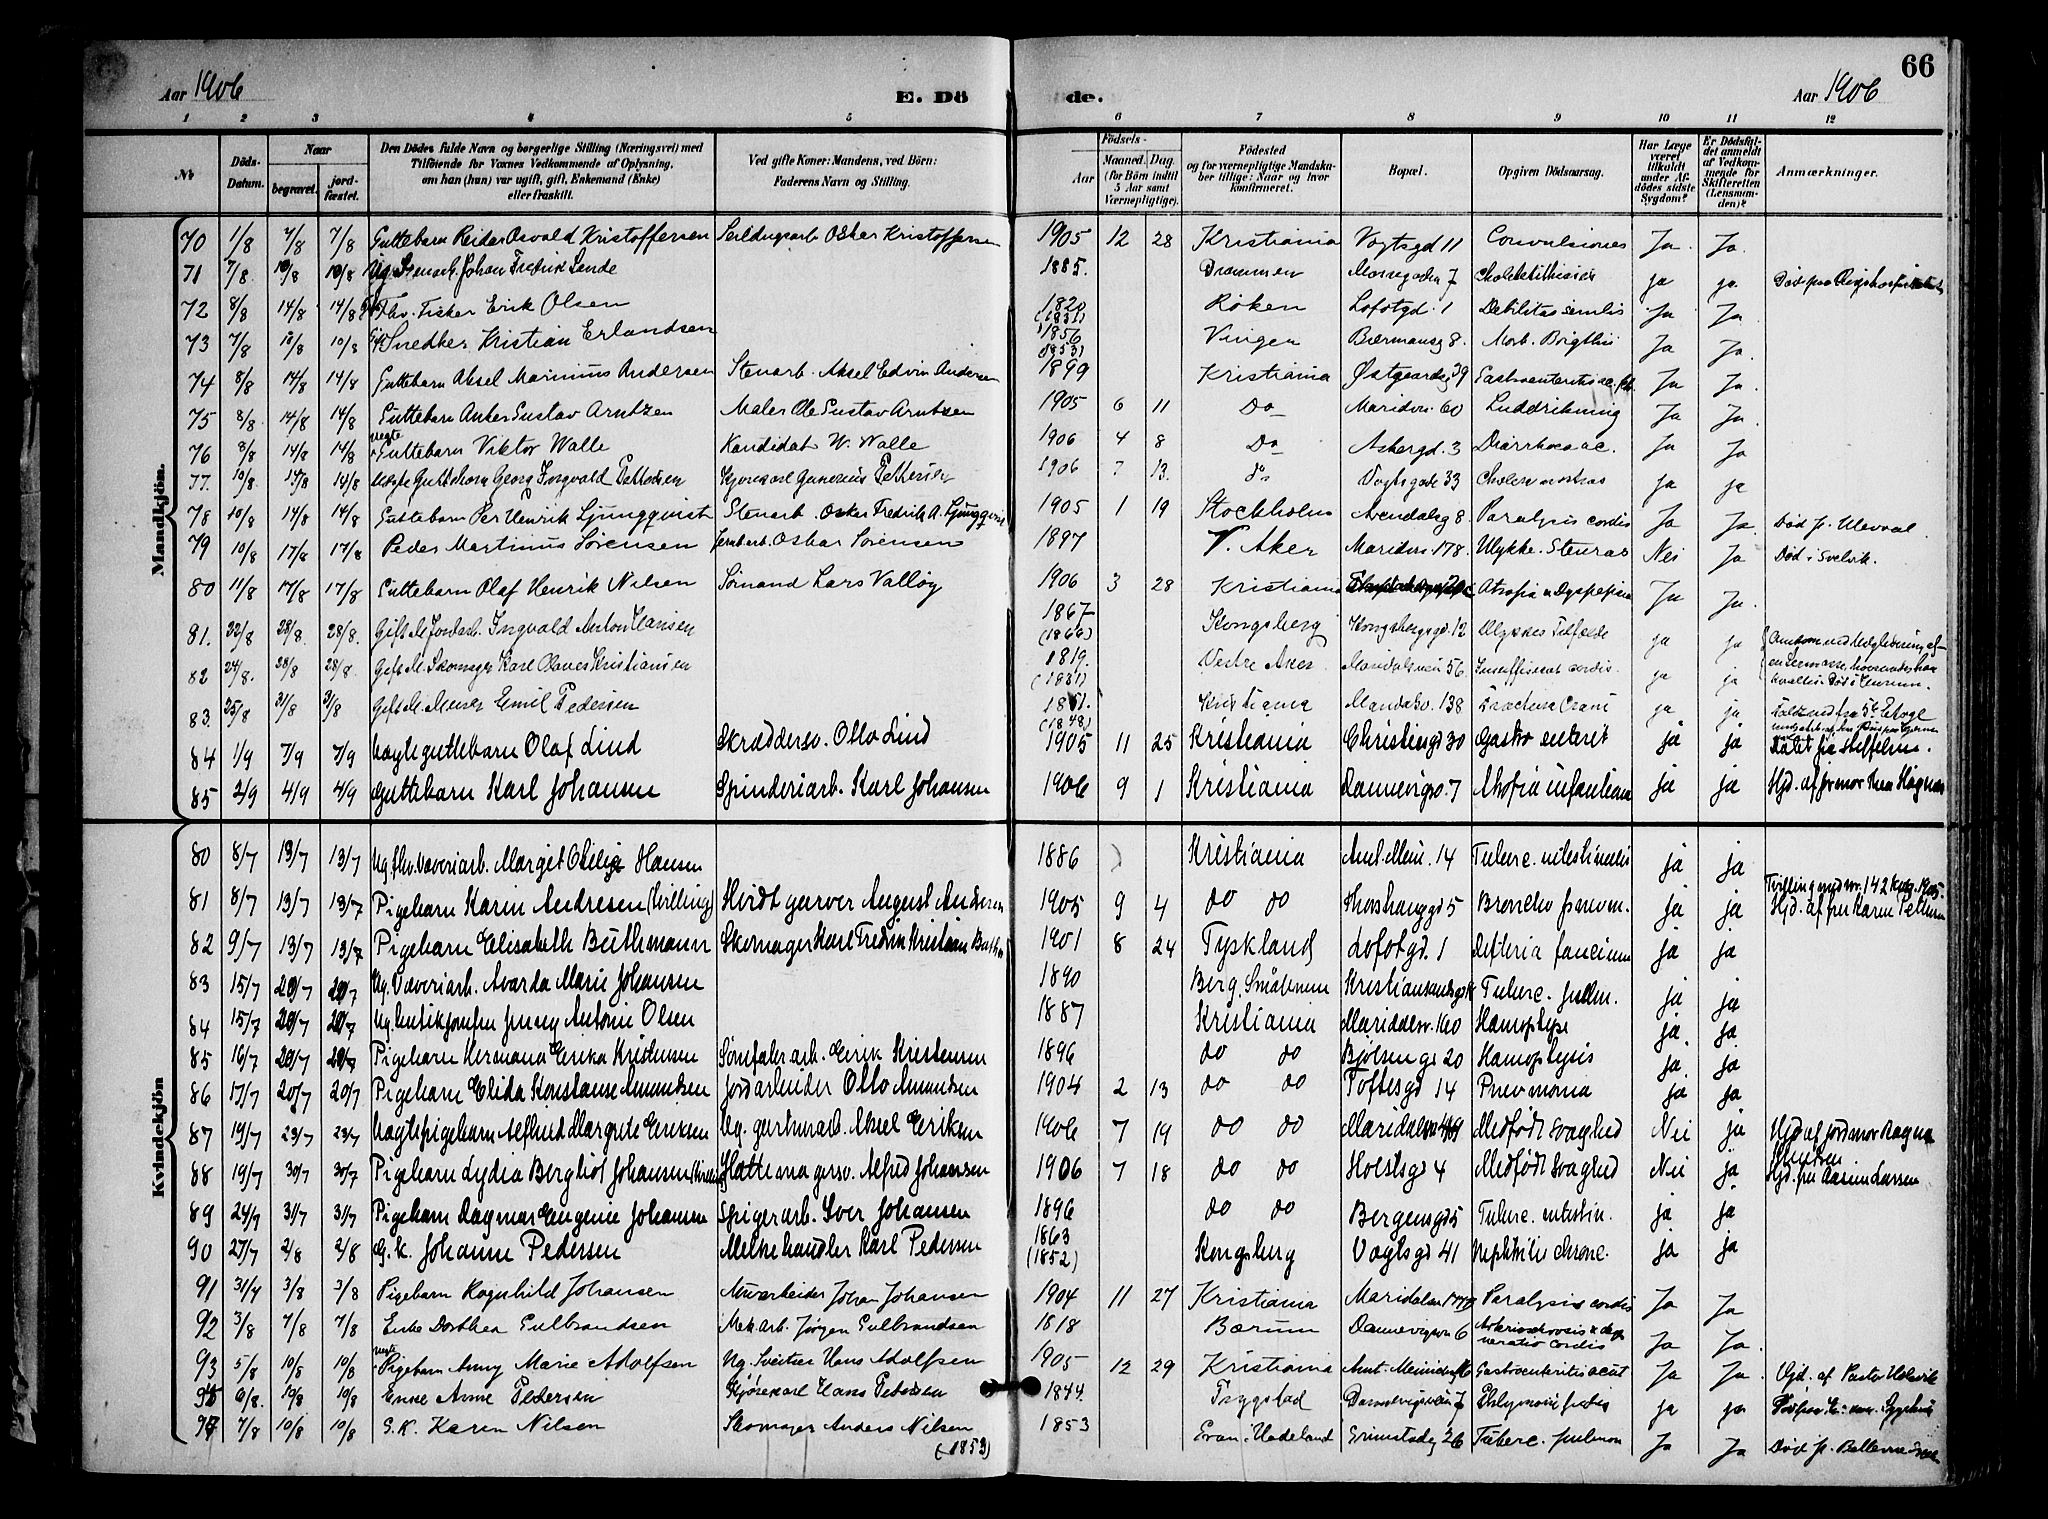 66
Aar 1906
E. Dö
de.
Aar 1906
1 2 3 4 5 6 7 8 9 10 11 12
№
Döds-
Datum.
Naar
begravet.
jord-
fæstet.
Den Dödes fulde Navn og borgerlige Stilling (Næringsvei) med
Tilföiende for Voxnes Vedkommende af Oplysning,
om han (hun) var ugift, gift, Enkemand (Enke)
eller fraskilt.
Ved gifte Koner: Mandens, ved Börn:
Faderens Navn og Stilling.
Födsels-
Aar
Maaned. Dag.
(for Börn indtil
5 Aar samt
Værnepligtige).
Födested
og for værnepligtige Mandska-
ber tillige: Naar og hvor
konfirmeret.
Bopæl.
Opgiven Dödsaarsag.
Har Læge
været
tilkaldt
under Af-
dödes sidste
Sygdom?
Er Dödsfal-
det anmeldt
af Vedkom-
mende for
Skifteretten
(Lensman-
den)?
Anmærkninger.
Mandkjön.
70 1/8 7/8 7/8 Guttebarn Reidar Osvald Kristoffersen Seildugsarb. Oskar Kristoffersen 1905 12 28 Kristiania Vogtsgd 11 Convulsiones Ja Ja.
71 7/8 10/8 10/8 Ug. Johan Fredrik Sande 1885. Drammen 7 ja ja. Död paa Rigshospitalet
72 8/8 14/8 14/8 Fhv. Fisker Erik Olsen 1820 (1831) Röken Lofotgd. 1 Debilitas senilis Ja Ja.
73 7/8 10/8 10/8 Snedker Kristian Erlandsen 1856 (1853) Vinger 8. Morb. Brigthii Ja Ja.
74 8/8 14/8 14/8 Guttebarn Aksel Marinius Andersen Stenarb. Aksel Edvin Andersen 1899 Kristiania 39 Gastroenteritis ac. Ja Ja.
75 8/8 14/8 14/8 Guttebarn Anker Gustav Arntzen Maler Ole Gustav Arntzen 1905 6 11 Do Maridsv. 60 Ja Ja.
76 8/8 14/8 14/8 ægte Guttebarn Viktor Walle Kandidat W. Walle 1906 4 8 Do Askergd. 3 Diarrhoea ac. Ja Ja
77. 10/8 14/8 14/8 ægte Guttebarn Georg Ingvald Pettersen Kjörekarl Gunerius Pettersen 1906 7 13. Do Vogtsgade 33 Cholera nostras ja ja
78 10/8 14/8 14/8 Guttebarn Per Henrik Ljungqvist Stenarb. Oskar Fredrik A. Ljungqvist 1905 1 19 Stockholm Arendalsg 8. Paralysis cordis Ja Ja. Död p. Ulevaal.
79 10/8 17/8 17/8 Peder Martinus Sörensen Jernarb. Oskar Sörensen 1897 V. Aker Maridsv. 178. Ulykke. Stenras Nei Ja Död i Svelvik.
80 11/8 17/8 17/8 Guttebarn Olaf Henrik Nilsen Sömand Lars Vallöy 1906 3 28 Kristiania Atrofia Dyspepsia Ja Ja.
81. 22/8 28/8. 28/8. Gift M. Jordarb. Ingvald Anton Hansen 1867 (1866) Kongsberg Kongsbergsgd 12 Ulykkes Tilfælde ja ja
82 24/8. 28/8 28/8. Gift M. Skomager Karl Olaves Kristiansen 1819. (1831) Vestre Aker Maridalsveien 56. Insufficient cordis ja ja
83. 25/8 31/8 31/8 Gift M. Murer Emil Pedersen 1851. (1848) Kristiania Maridalsv. 138 Fractura Cranii ja ja Faldt ned fra 5te Etage
84 1/9 7/9 7/9 ægte guttebarn Olaf Lind Skræddersv. Otto Lind 1905 11 25 Kristiania Christiesgd 30 Gastro enterit ja ja
85 2/9 4/9 4/9 Guttebarn Karl Johansen Spinderiarb. Karl Johansen 1906 9 1 Kristiania Dannevigsv. 7 Atrofia infantium ja ja Hjd. af jormor Thea Hagnæs
Kvindekjön
80 8/7 13/7 13/7 Ug. fhv. Væveriarb. Margit Otilie Hansen 1886 Kristiania Amt. Mein. 14 Tuberc. intestinalis ja ja
81 8/7 13/7 13/7 Pigebarn Karin Andresen (Tvilling) Hvidtgarver August Andresen 1905 9 4 do do 5 Broncho pneum. ja ja Tvilling med nr. 142 1905. Hjd. af fru Karen Pettersen
82 9/7 13/7 13/7 Pigebarn Elisabeth Buthmann Skomager Karl Fredrik Kristian 1901 8 24 Tyskland Lofotgd. 1 Difteria faucium ja ja
83 15/7 20/7 20/7 Ug. Væveriarb. Avarda Marie Johansen 1890 Berg. Smålenene Tuberc. pulm. ja ja
84 15/7 20/7 20/7 Ug. Butikjomfru Jenny Antonie Olsen 1887 Kristiania Maridalsv. 160 Hæmoptyse ja ja
85 16/7 20/7 20/7 Pigebarn Hermana Erika Kristensen arb. Erik Kristensen 1896 do do Bjölsen gd 20 Hæmoptysis ja ja
86 17/7 20/7 20/7 Pigebarn Elida Konstanse Amundsen Jordarbeider Otto Amundsen 1904 2 13 do do Toftesgd 14 Pnevmonia ja ja
87 19/7 23/7 23/7 uægte pigebarn Alfhild Margrete Eriksen Ug. arb. Aksel Eriksen 1906 7 19 do do Medfödt Svaghed Nei ja Hjd af jordmor Ragna Knutsen
88 19/7 30/7 30/7 Pigebarn Lydia Bergliot Johansen Hattemagersv. Alfred Johansen 1906 7 18 do do Holstsgd 4 Medfödt Svaghed Nei ja Hjd. fru Larsen
89 24/7 31/7 31/7 Pigebarn Dagmar Eugenie Johansen Spigerarb. Iver Johansen 1896 do do Bergensgd 5 Tuberc. intestin. ja ja
90 27/7 2/8 2/8 G. k. Johanne Pedersen Melkehandler Karl Pedersen 1863 (1852) Kongsberg Vogtsgd 41 Nephritis chronc. ja ja
91 31/7 3/8 3/8 Pigebarn Ragnhild Johansen Murarbeider Johan Johansen 1904 11 27 Kristiania Paralysis cordis Ja Ja
92 3/8 7/8 7/8 Enke Dorthea Gulbrandsen Mek arb. Jörgen Gulbrandsen 1818 Bærum Dannevigsvn 6 Arteriosclerosis & degeneratio cordis Ja Ja.
93 5/8 10/8 10/8 uægte Pigebarn Anny Marie Adolfsen Ug. Sveitser Hans Adolfsen 1905 12 29 Kristiania Gastroenteritis acut Ja Ja. Hjd. af Pastor
6/8. 10/8 10/8 Enke Anne Pedersen Kjörekarl Hans Pedersen 1844. Tryggstad Dannevigsveien 7 ja ja
7/8 10/8 10/8 G.K. Karen Nilsen Skomager Anders Nilsen (1853) 1853 Gran, Hadeland Grimstadg 26 Tuberc. pulmon Ja Ja Död p.